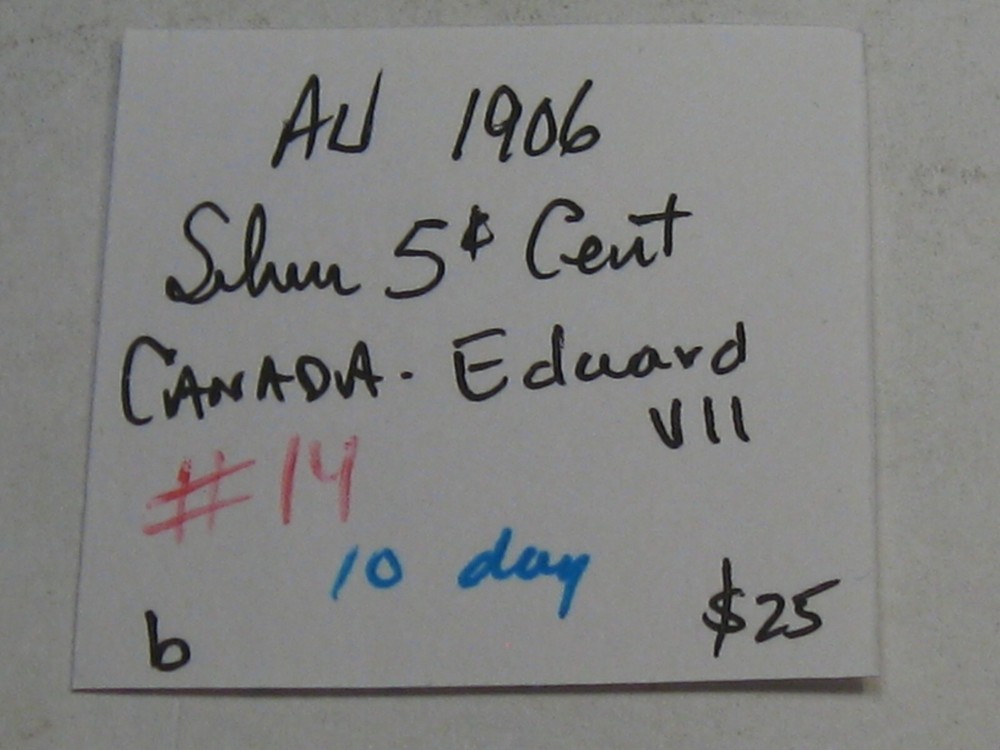 AU 1906
Silver 5¢ Cent
CANADA. Edward
VII
#14
10 day
b $25